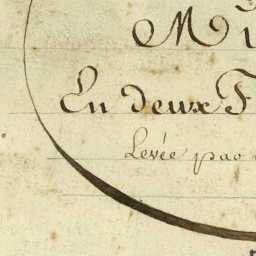 Mi
En deux F
Levée par